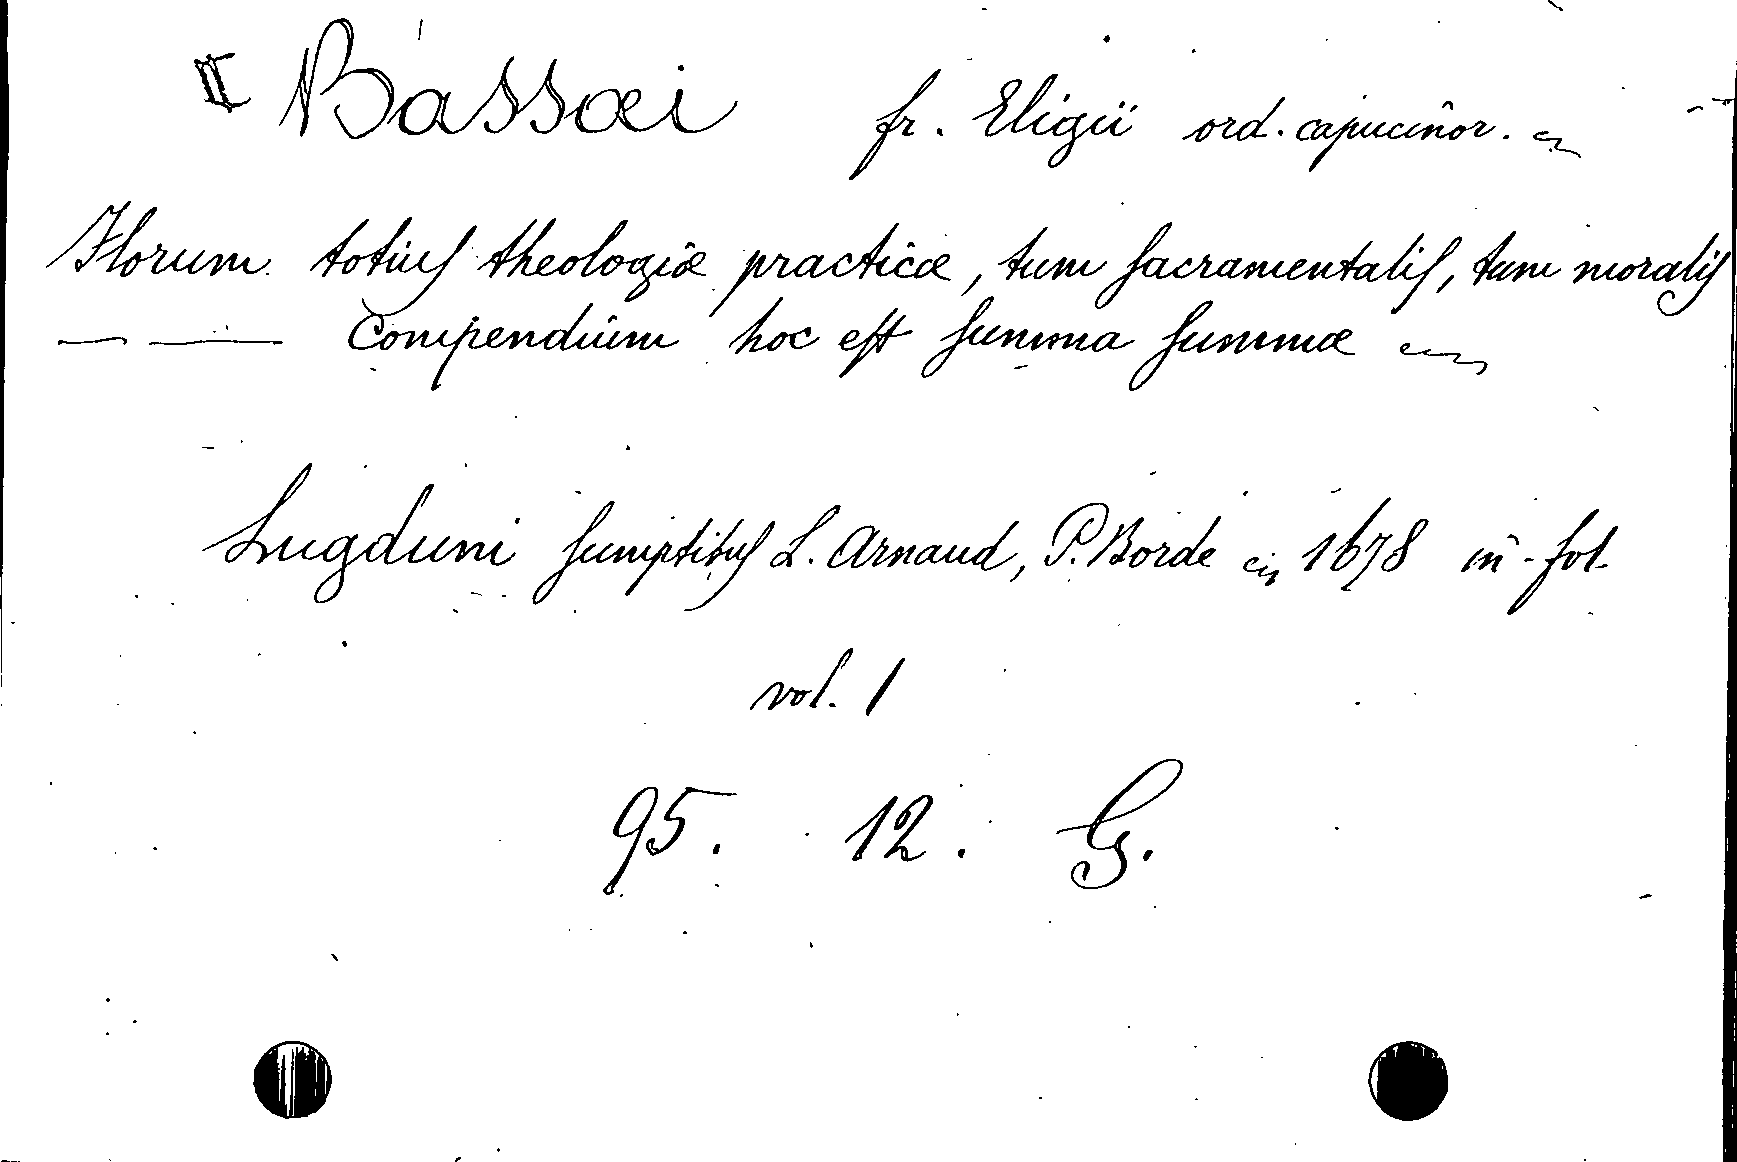 II Bassæi fr. Eligii ord. capucinor.
Florum totius theologiæ practicæ, tum sacramentalis, tum moralis
Compendium hoc est summa summæ
Lugduni sumptibus L. Arnaud, P. Borde 1678 in-fol.
vol. 1
95. 12. G.